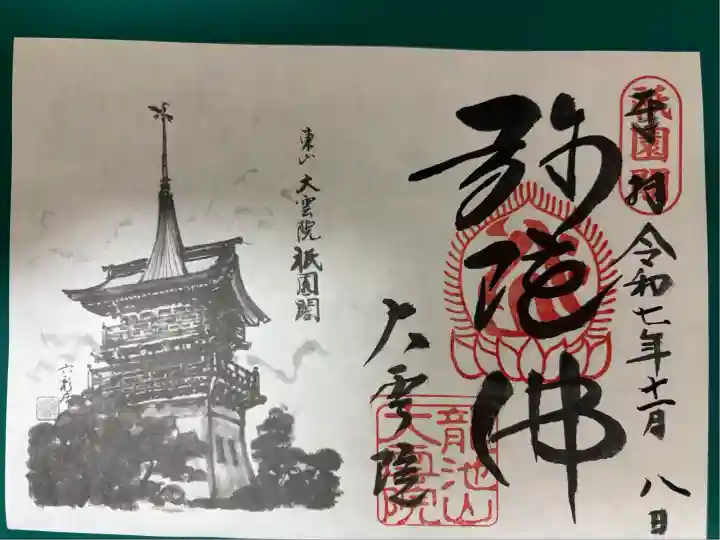 奉拝
祇園閣
令和七年十一月八日
弥陀佛
大雲院
龍池山
大雲院
東山 大雲院 祇園閣